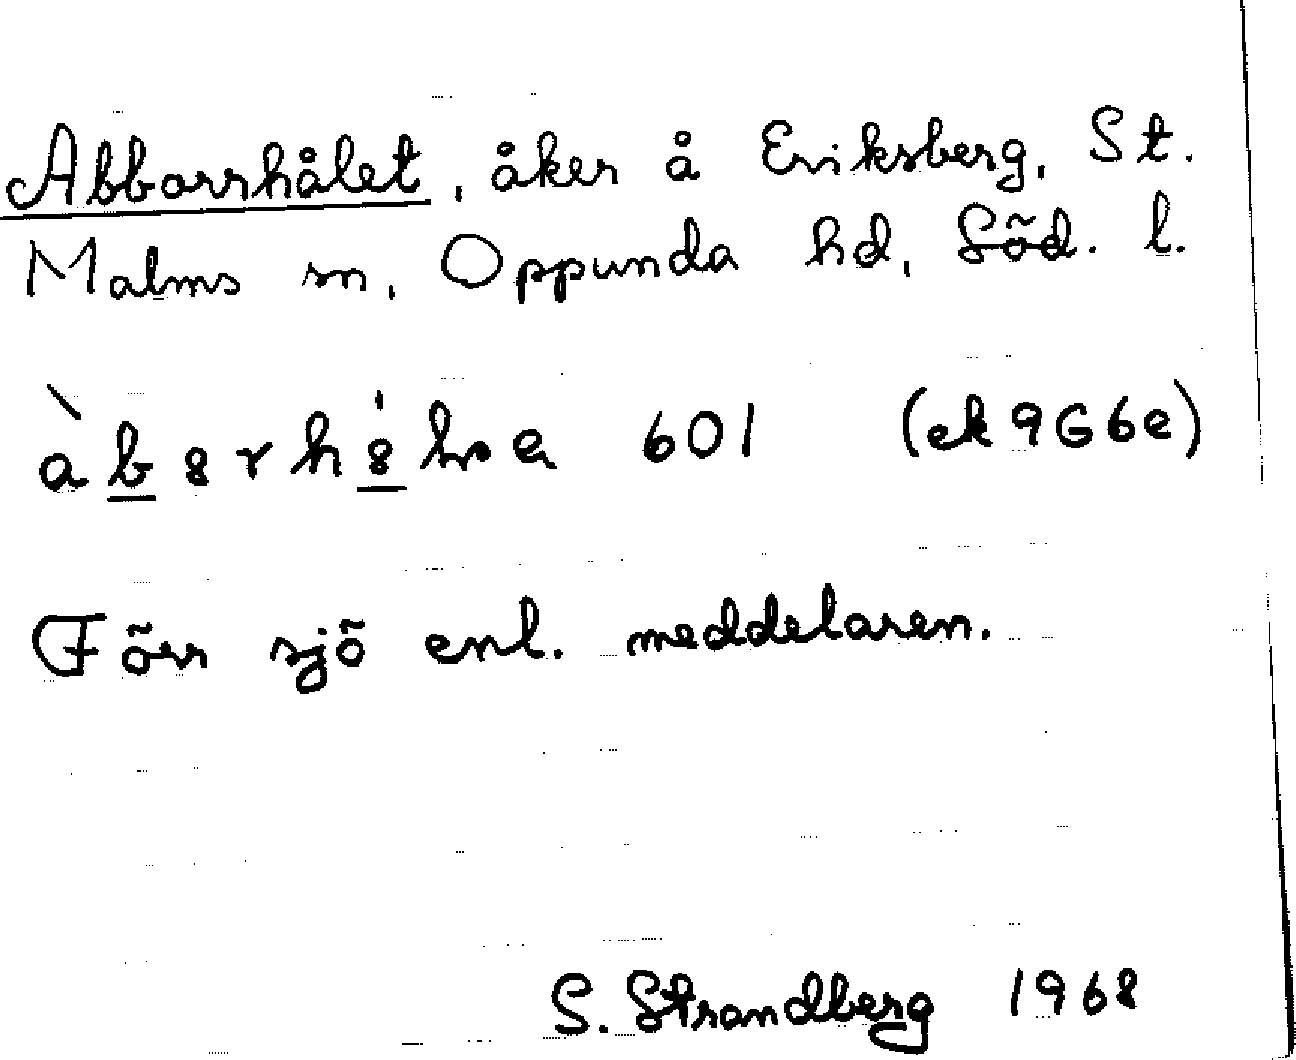 Abborrhålet, åker å Eriksberg, St.
Malms sn, Oppunda hd, Söd. l.
601 (ek 9G6e)
Förr sjö enl. meddelaren.
S. Strandberg 1968